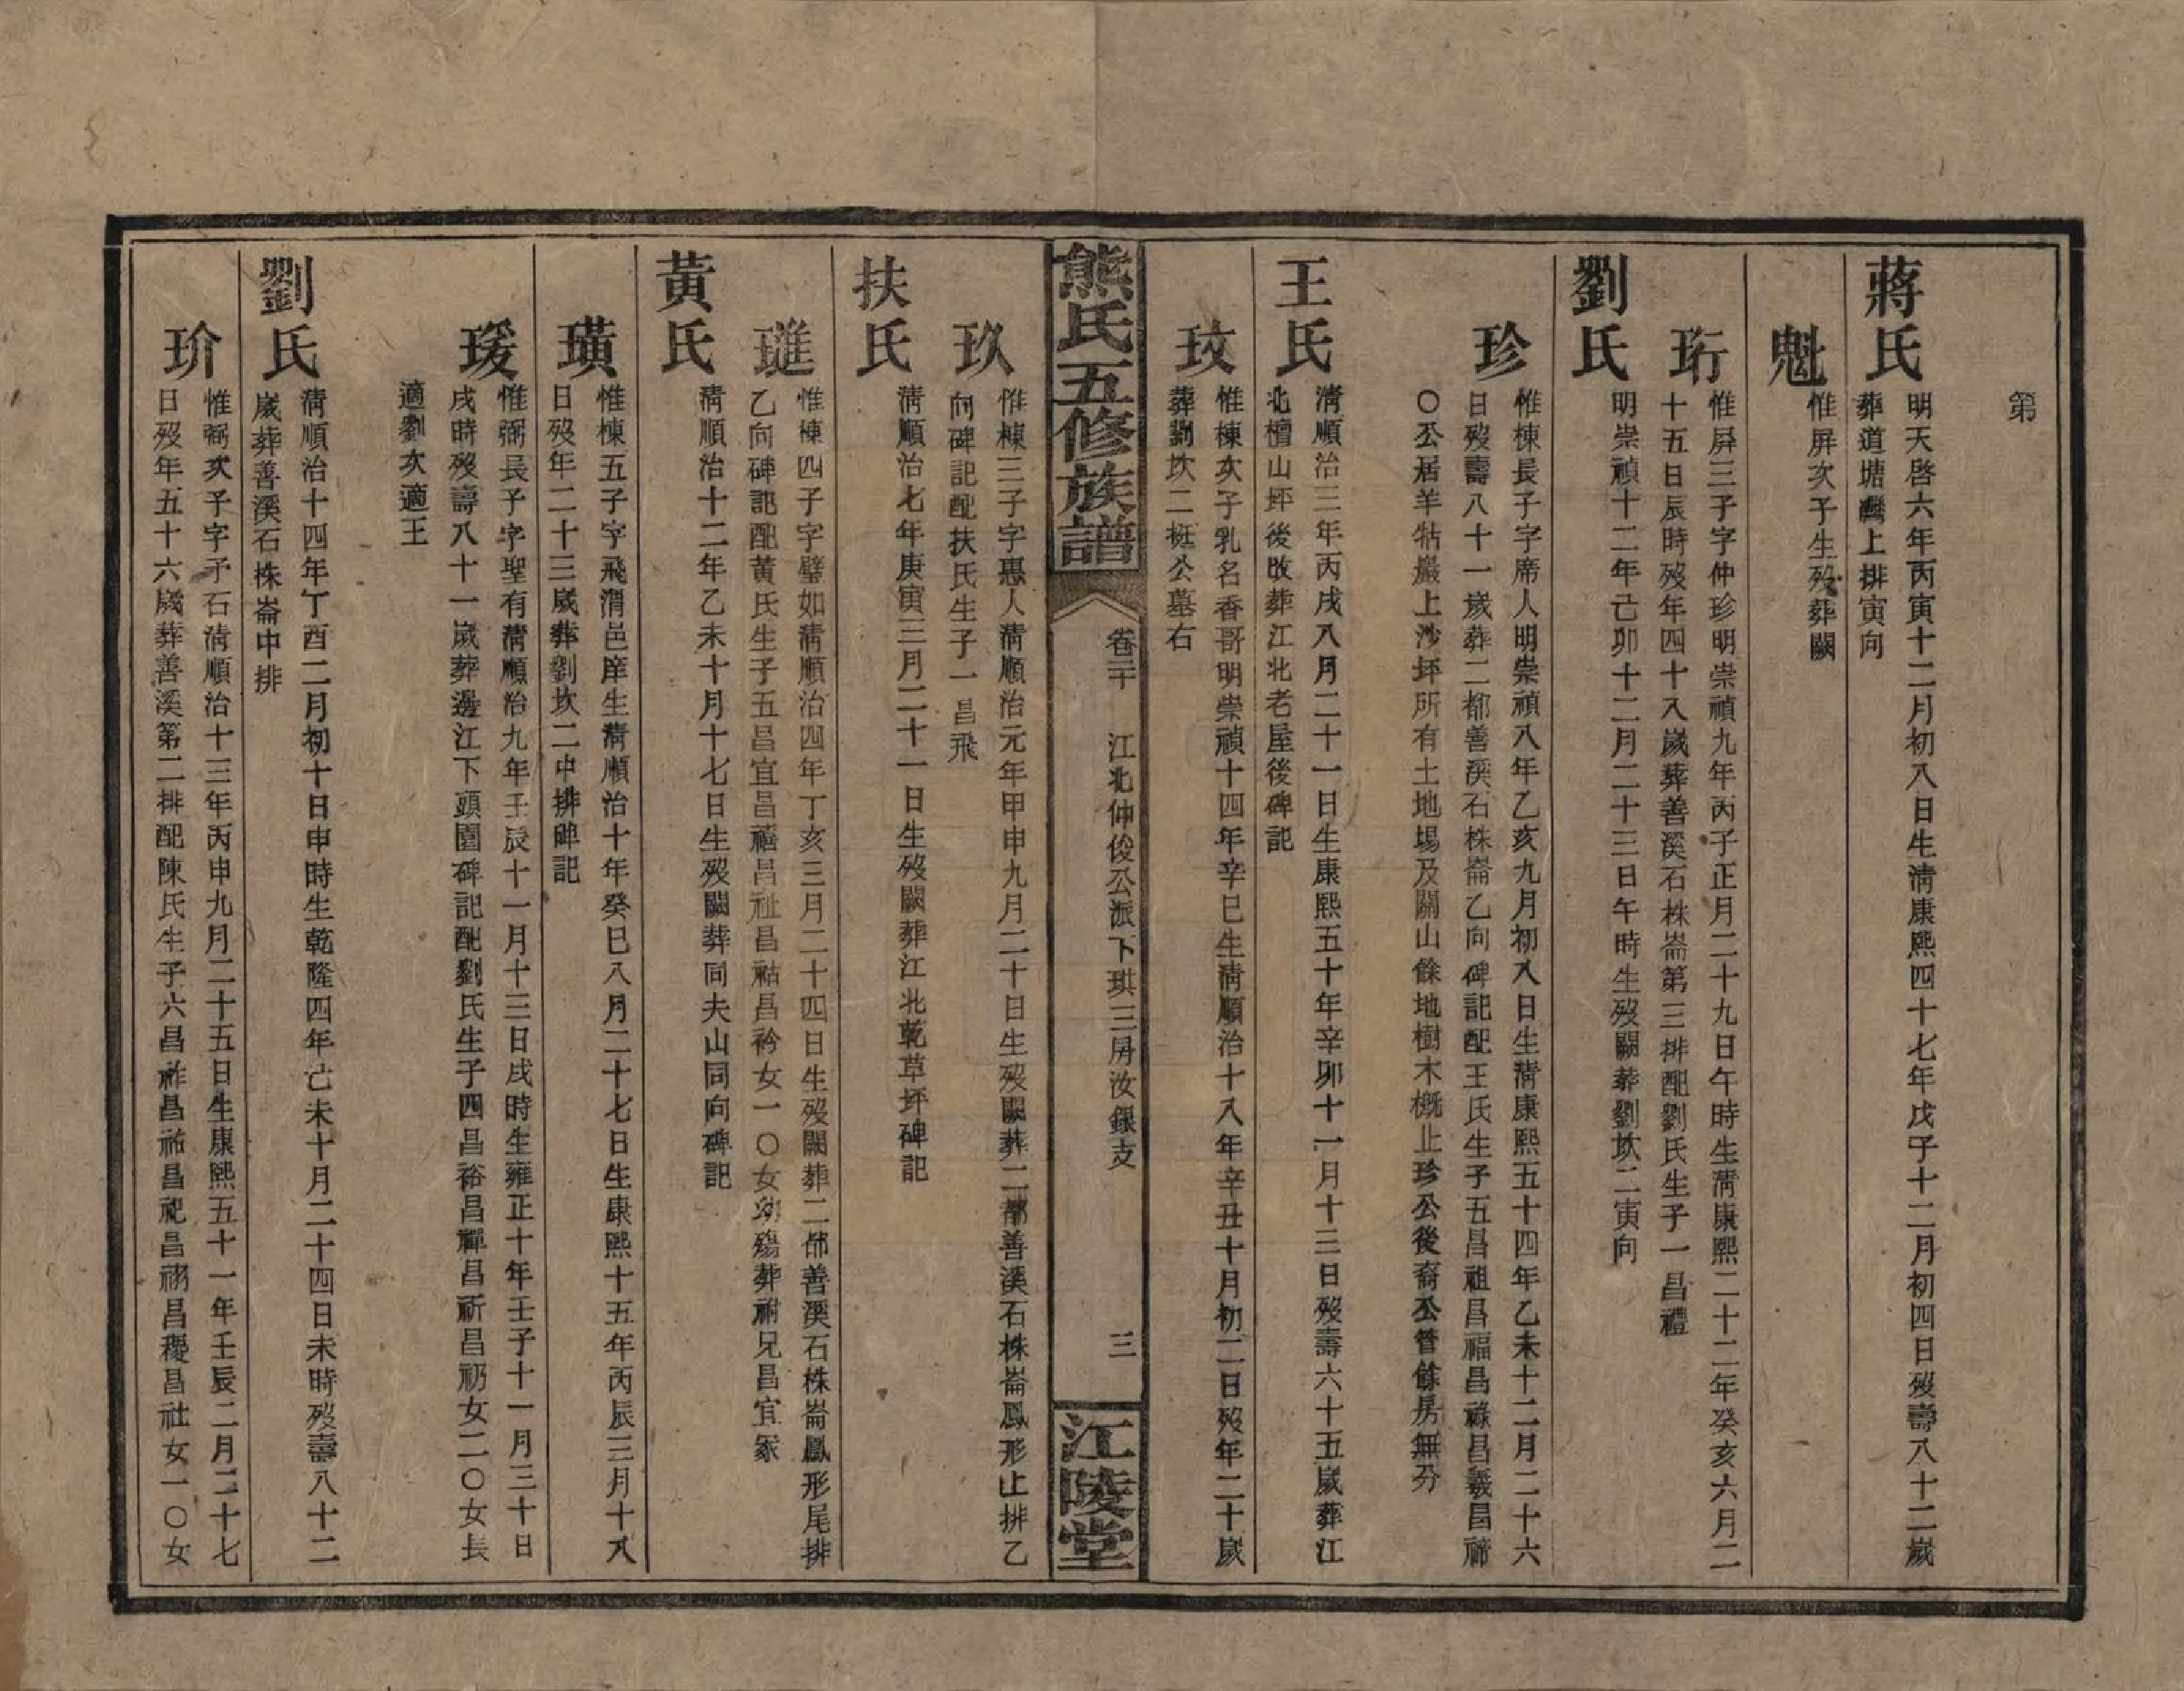 第
蔣氏
明天啓六年丙寅十二月初八日生清康熙四十七年戊子十二月初四日歿壽八十二歲
葬道塘灣上排寅向
魁
惟屏次子生歿葬闕
珩
惟屏三子字仲珍明崇禎九年丙子正月二十九日午時生清康熙二十二年癸亥六月二
十五日辰時歿年四十八歲葬善溪石株崙第三排配劉氏生子一昌禮
劉氏
明崇禎十二年己卯十二月二十三日午時生歿闕葬劉坎二寅向
珍
惟棟長子字席人明崇禎八年乙亥九月初八日生清康熙五十四年乙未十二月二十六
日歿壽八十一歲葬二都善溪石株崙乙向碑記配王氏生子五昌祖昌福昌祿昌羲昌禘
〇公居羊牯巖上沙坪所有土地場及關山餘地樹木槪止珍公後裔公管餘房無分
王氏
清順治三年丙戌八月二十一日生康熙五十年辛卯十一月十三日歿壽六十五歲葬江
北檀山坪後改葬江北老屋後碑記
玟
惟棟次子乳名香哥明崇禎十四年辛巳生清順治十八年辛丑十月初二日歿年二十歲
葬劉坎二挺公墓右
熊氏五修族譜
卷三十
江北仲俊公派下琪三房汝銀支
三
江陵堂
玖
惟棟三子字惠人清順治元年甲申九月二十日生歿闕葬二都善溪石株崙鳳形止排乙
向碑記配扶氏生子一昌飛
扶氏
清順治七年庚寅三月二十一日生歿闕葬江北乾草坪碑記
璡
惟棟四子字璧如清順治四年丁亥三月二十四日生歿闕葬二都善溪石株崙鳳形尾排
乙向碑記配黃氏生子五昌宜昌禧昌祉昌祜昌衿女一〇女幼殤葬祔兄昌宜冢
黃氏
清順治十二年乙未十月十七日生歿闕葬同夫山同向碑記
璜
惟棟五子字飛渭邑庠生清順治十年癸巳八月二十七日生康熙十五年丙辰三月十八
日歿年二十三歲葬劉坎二中排碑記
瑗
惟弼長子字聖有清順治九年壬辰十一月十三日戌時生雍正十年壬子十一月三十日
戌時歿壽八十一歲葬邊江下頭園碑記配劉氏生子四昌裕昌禪昌祈昌礽女二〇女長
適劉次適王
劉氏
清順治十四年丁酉二月初十日申時生乾隆四年己未十月二十四日未時歿壽八十二
歲葬善溪石株崙中排
玠
惟弼次子字矛石清順治十三年丙申九月二十五日生康熙五十一年壬辰二月二十七
日歿年五十六歲葬善溪第二排配陳氏生子六昌祚昌祐昌祀昌祤昌禝昌社女一〇女